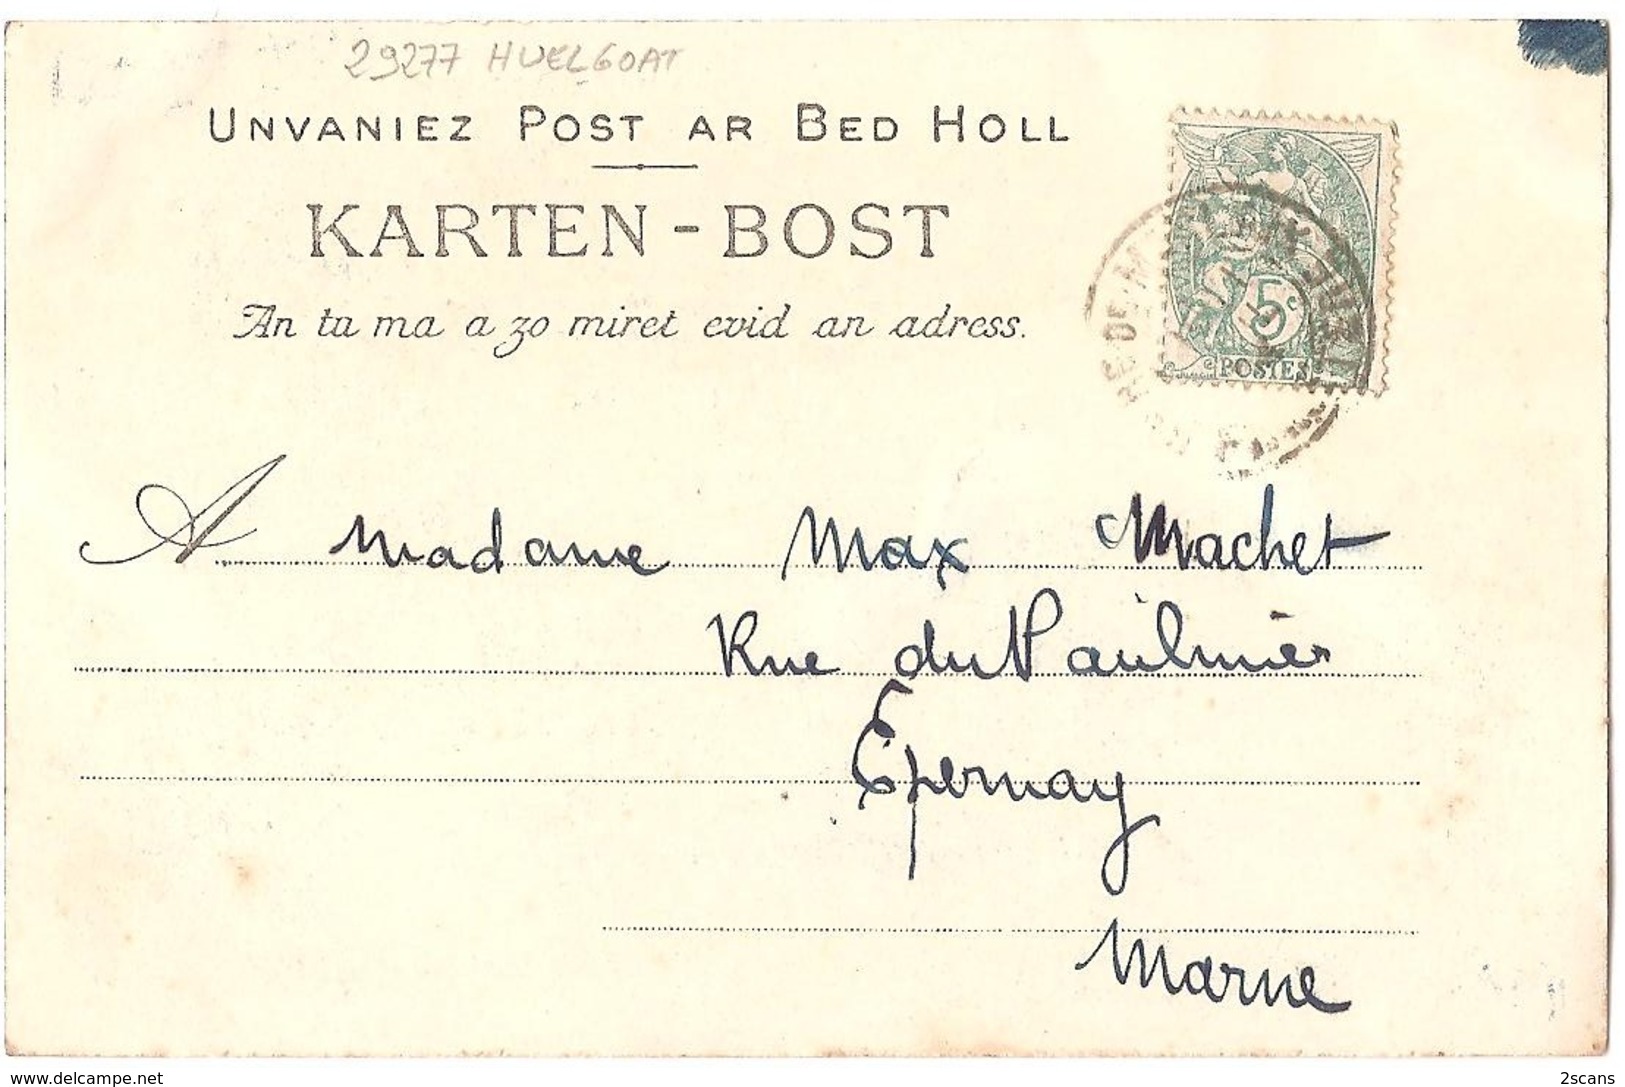 29277 HUELGOAT
UNVANIEZ POST AR BED HOLL
KARTEN-BOST
An tu ma a zo miret evid an adress.
5c
POSTES
A Madame Max Machet
Rue du Paulmier
Epernay
Marne
www.delcampe.net
2scans